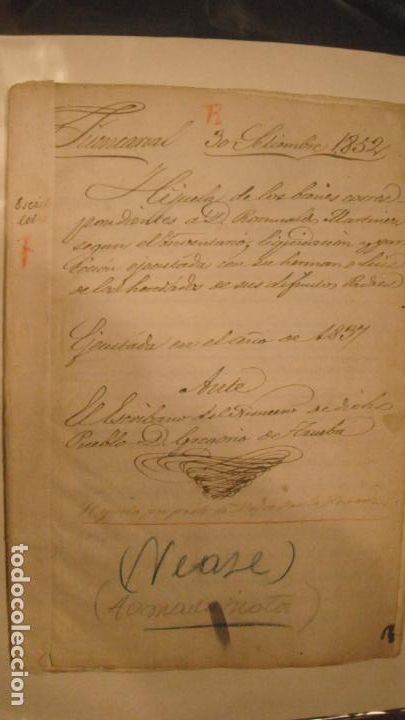 R
Fuencarral 30 Setiembre 1852
Hijuela de los bienes corres
pondientes a D. Romualdo Martinez
segun el Inventario, liquidacion y par
ticion ejecutada con su hermano
de los heredados de sus difuntos Padres
Ejecutada en el año de 1837
Ante
El Escribano del Numero de dicho
Pueblo D. Gregorio de
(Vease)
(tomada nota)
todocoleccion.net